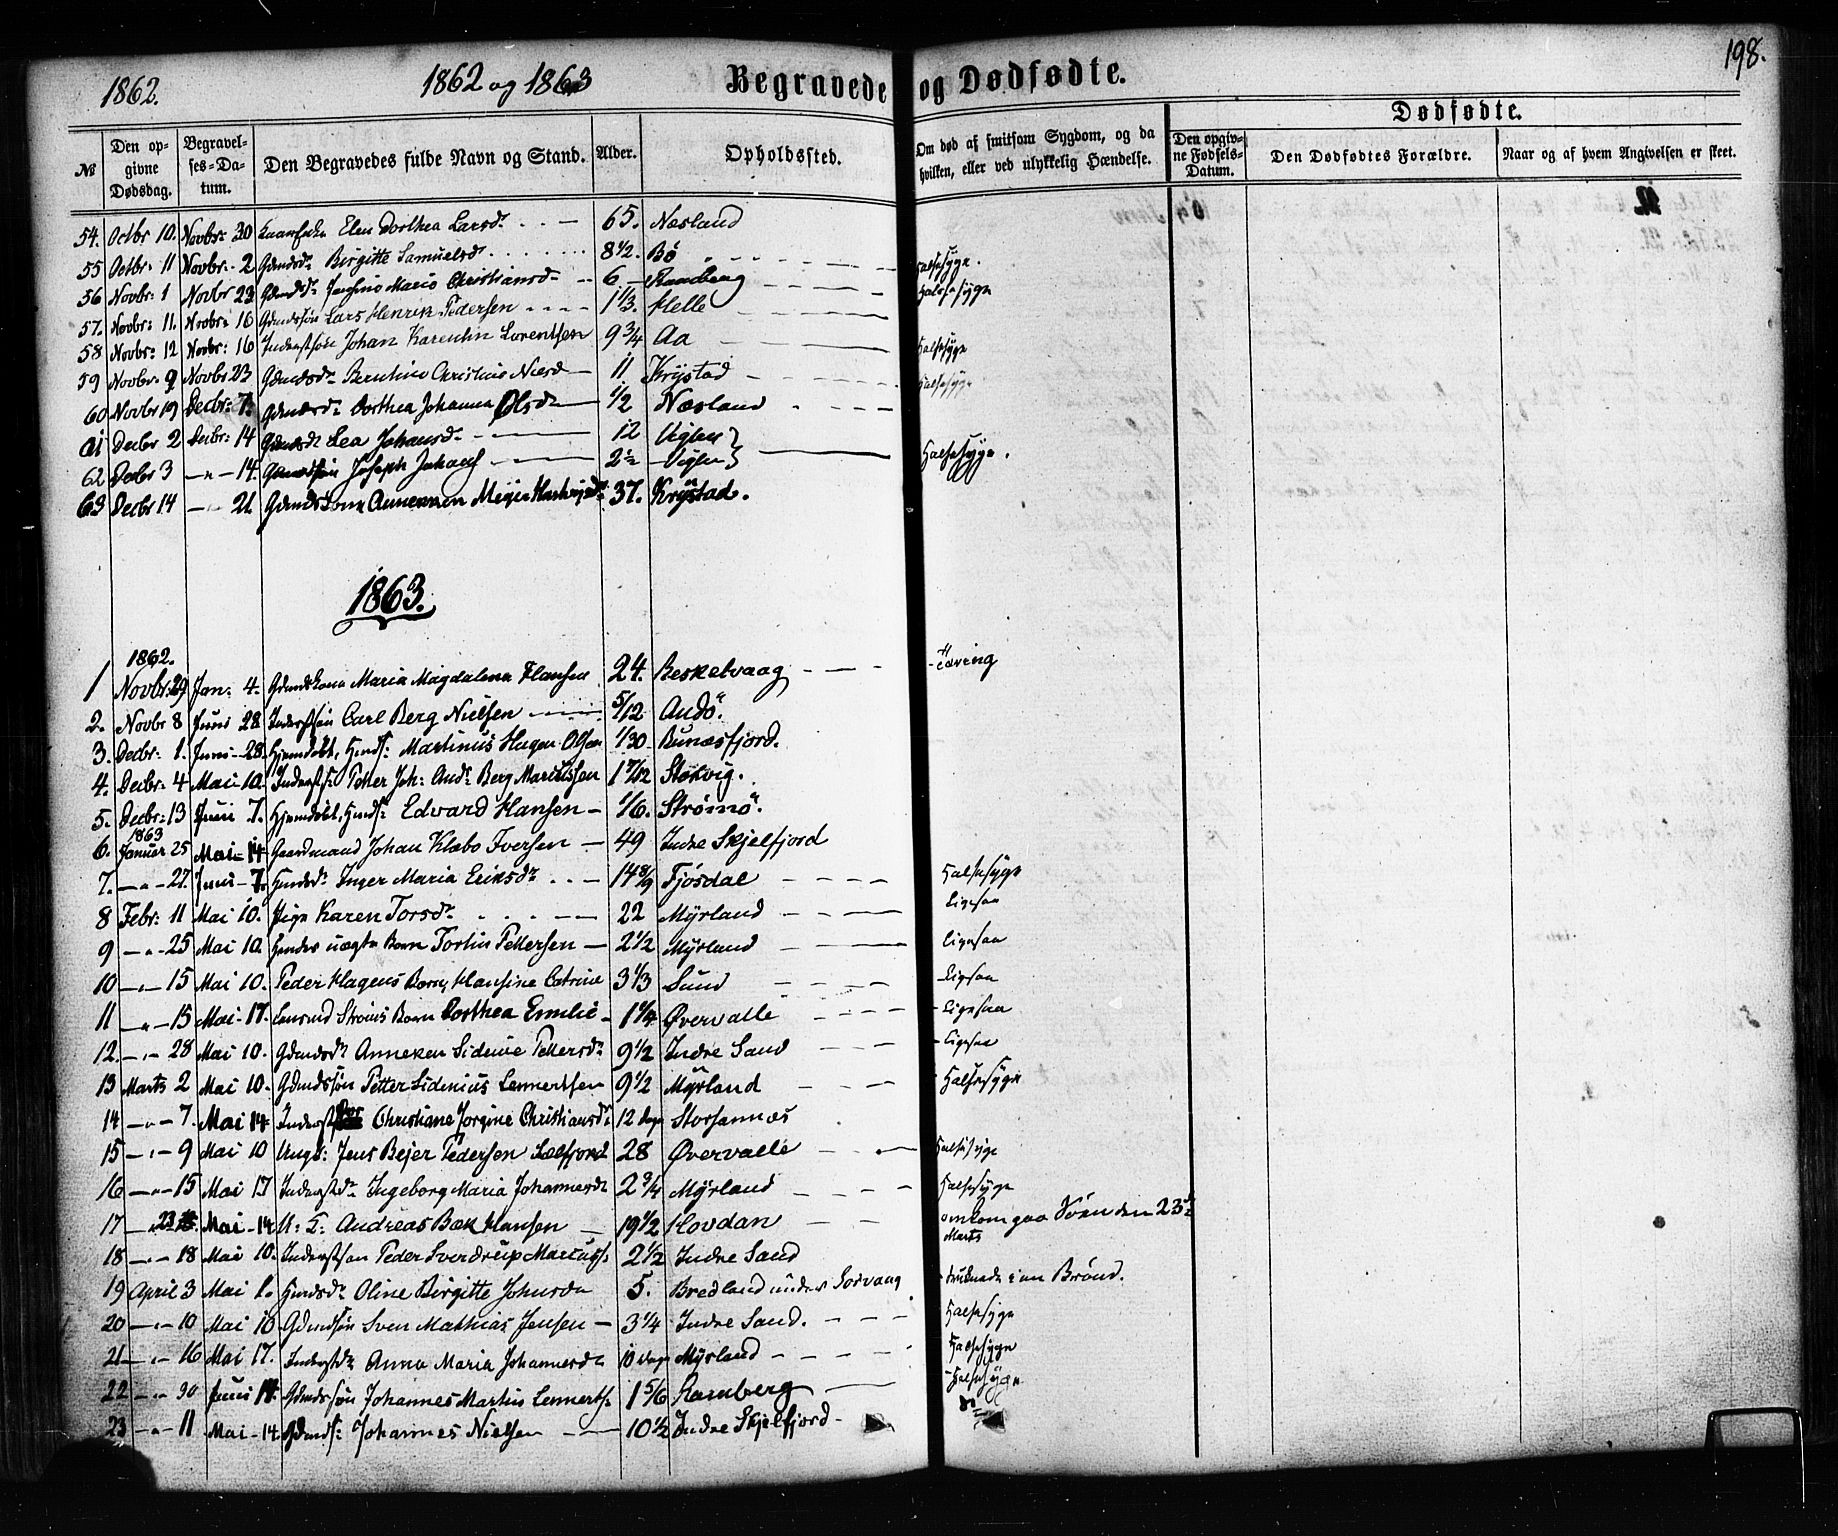 198.
1862. 1862 og 1863 Begravede og Dødfødte.
Dødfødte.
№ Den opgivne Dødsdag. Begravelses-Datum. Den Begravedes fulde Navn og Stand. Alder. Opholdssted. Om død af smitsom Sygdom, og da hvilken, eller ved ulykkelig Hændelse. Den opgivne Fødsels-Datum. Den Dødfødtes Forældre. Naar og af hvem Angivelsen er skeet.
54. Octbr 10. Novbr: 30 Elen Dorthea Larsdr 65. Næsland
55 Octbr: 11 Novbr: 2 Gdmdsdr Birgitte Samuelsdr 8 1/2. Bø Halsesyge.
56 Novbr: 1 Novbr 23 Gdmdsdr Jensine Marie Christiansdr 6 Ramberg Halsesyge
57. Novbr: 11. Novbr: 16 Gdmdssøn Lars Henrik Pedersen 1 1/3. Helle
58 Novbr: 12 Novbr: 16 Inderstsøn Johan Karentin Lorentsen 9 3/4 Aa Halsesyge
59 Novbr. 9 Novbr 23 Gdmdsdr Berntine Christine Nilsd 11 Krystad Halsesyge
60 Novbr 19 Decbr: 7. Gdmdsdr Dorthea Johanna Olsdr 1/2 Næsland
61 Decbr 2 Decbr: 14 Gdmdsdr Lea Johansdr 12 Viglen }
62 Decbr 3 — 14. Gdmdssøn Joseph Johans 2 1/2 Viglen } Halsesyge.
63 Decbr 14 — 21. Gdmdskone Annemon Meyer Hartvigsdr 37. Krystad.
1863.
1862.
1 Novbr: 29 Jan: 4. Gdmdskone Maria Magdalena Hansen 24. Beskelvaag Tæring
2. Novbr 8 Juni 28 Inderstsøn Carl Berg Nielsen 5/12 Andø.
3. Decbr: 1. Juni 28. Hjemdøbt, Hmds: Martinus Hagen Olsen 1/30 Bunæsfjord.
4. Decbr: 4 Mai 10. Inderstss: Petter Joh: Andr Berg Marcussen 1 7/12 Støkvig.
5. Decbr: 13 Juni 7. Hjemdøbt, Hmdsn Edvard Hansen 1/6. Strømø.
1863
6. Januar 25 Mai 14 Gaardmand Johan Klæbo Iversen 49 Indre Skjelfjord
7. — 27. Juni 7. Hmdsdr Inger Maria Eriksdr 14 8/9 Fjosdal Halsesyge
8 Febr: 11 Mai 10. Pige Karen Torsdr 22 Myrland Ligesaa
9 — 25 Mai 10. uægte Barn Tortin Pettersen 2 1/2 Myrland Ligesaa
10 — 15 Mai 10. Peder Hagens Barn, Hansine Catrine 3 1/3 Sund Ligesaa
11 — 15 Mai 17. Lensmd Strøms Barn Dorthea Emilie 1 1/4 Øvervalle Ligesaa
12. — 28 Mai 10. Gdmdsdr Anneken Sidenie Pettersdr 9 1/2 Indre Sand Ligesaa
13 Marts 2 Mai 10. Gdmdssøn Petter Sidenius Lennertsen 9 1/2 Myrland Halsesyge
14 — 7. Mai 14 Christiane Jorgine Christiansdr 12 dage Storsannæs
15 — 9 Mai 10 Ungk: Jens Bejer Pedersen Selfjord 28 Øvervalle Halsesyge
16 — 15 Mai 17 Inderstdr Ingeborg Maria Johannesdr 2 3/4 Myrland Halsesyge
17 — 23 Mai 14 U: K: Andreas Bæk Hansen 19 1/2 Hovdan omkom paa Søen den 23de Marts
18 — 18 Mai 10. Inderstsøn Peder Sverdrup Marcuss. 2 1/2 Indre Sand
19 April 3 Mai 1. Hmdsdr Oline Birgitte Johnsdr 5. Bredland under Sørvaag druknede i en Brønd.
20 — 10 Mai 10 Gdmdsøn Sven Mathias Jensen 3 1/4 Indre Sand. Halsesyge
21 — 16 Mai 17. Inderstdr Anna Maria Johannesdr 10 dage Myrland Halsesyge
22 — 30 Juni 14. Gdmdssøn Johannes Martin Lennerts. 1 5/6 Ramberg Halsesyge
23 — 11 Mai 14 Gdmds: Johannes Nielsen 10 1/2 Indre Skjelfjord do